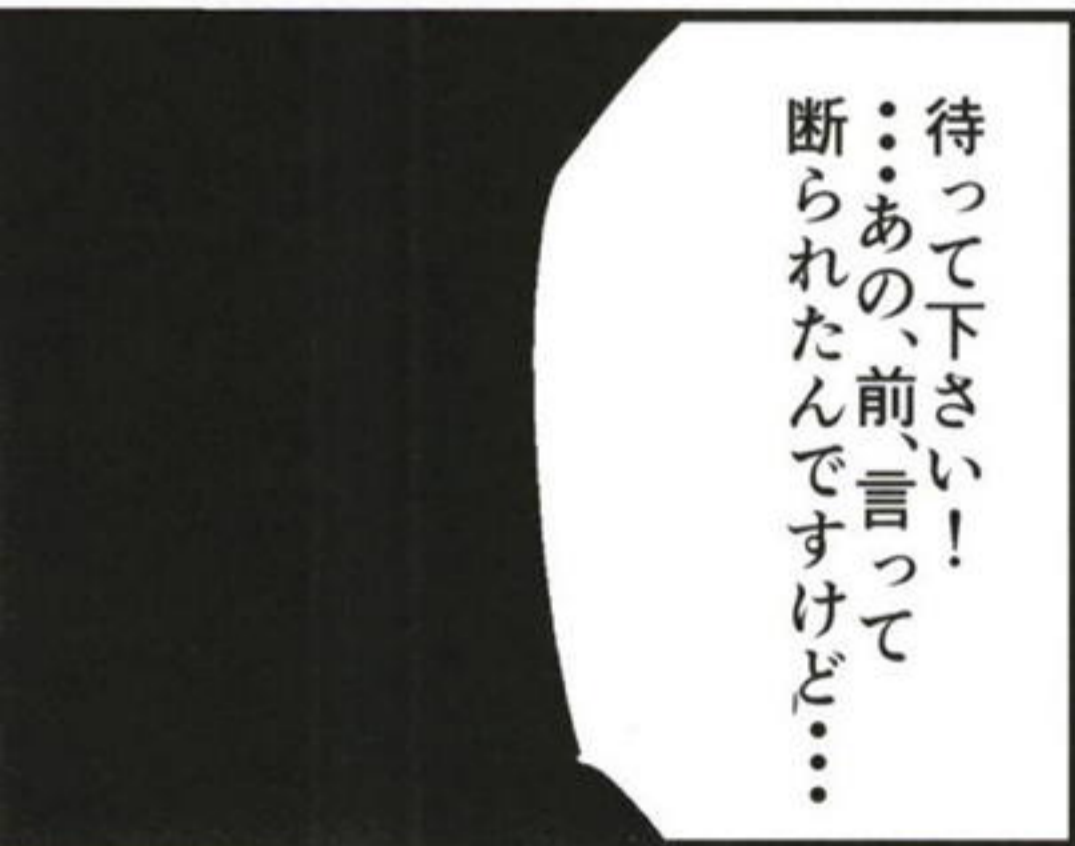 待って下さい！
・・・あの、前、言って
断られたんですけど・・・